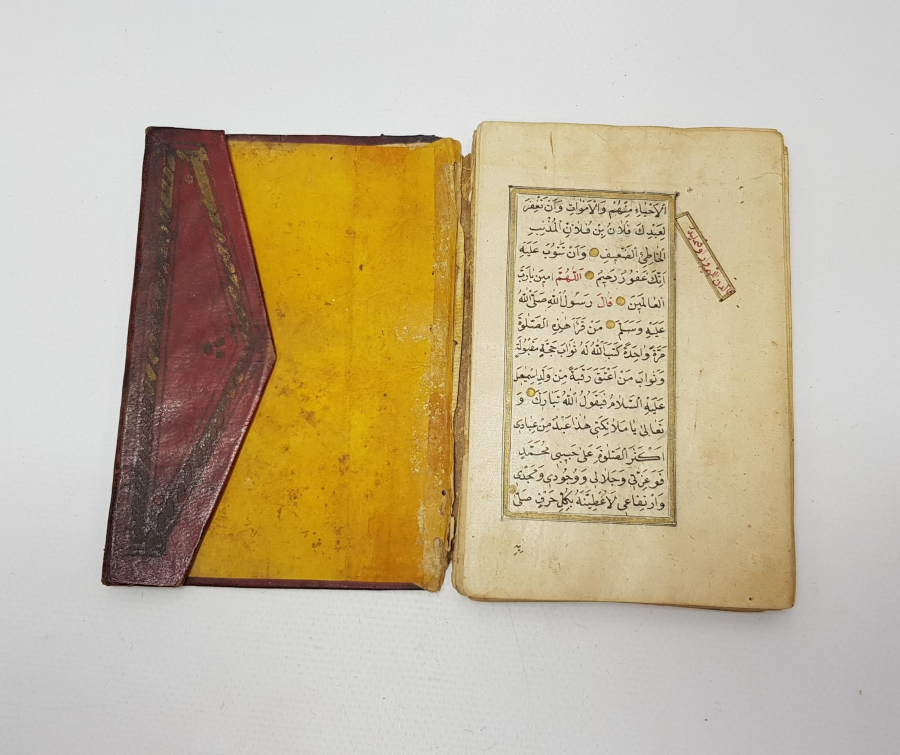 الْاَحْيَاءِ مِنْهُمْ وَالْاَمْوَاتِ وَاَنْ تَغْفِرَ
لِعَبْدِكَ فُلَانِ بْنِ فُلَانٍ الْمُذْنِبِ
الْخَاطِئِ الضَّعِيفِ وَاَنْ تَتُوبَ عَلَيْهِ
اِنَّكَ غَفُورٌ رَحِيمٌ اَللّٰهُمَّ اٰمِينَ يَارَبَّ
الْعَالَمِينَ قَالَ رَسُولُ اللهِ صَلَّى اللهُ
عَلَيْهِ وَسَلَّمَ مَنْ قَرَأَ هٰذِهِ الصَّلٰوةَ
مَرَّةً وَاحِدَةً كَتَبَ اللهُ لَهُ ثَوَابَ حَجَّةٍ مَقْبُولَةٍ
وَثَوَابَ مَنْ اَعْتَقَ رَقَبَةً مِنْ وَلَدِ اِسْمٰعِيلَ
عَلَيْهِ السَّلَامُ فَيَقُولُ اللهُ تَبَارَكَ وَ
تَعَالٰى يَا مَلَائِكَتِي هٰذَا عَبْدٌ مِنْ عِبَادِي
اَكْثَرَ الصَّلٰوةَ عَلٰى حَبِيبِي مُحَمَّدٍ
فَوَعِزَّتِي وَجَلَالِي وَوُجُودِي وَمَجْدِي
وَارْتِفَاعِي لَاُعْطِيَنَّهُ بِكُلِّ حَرْفٍ صَلَّى